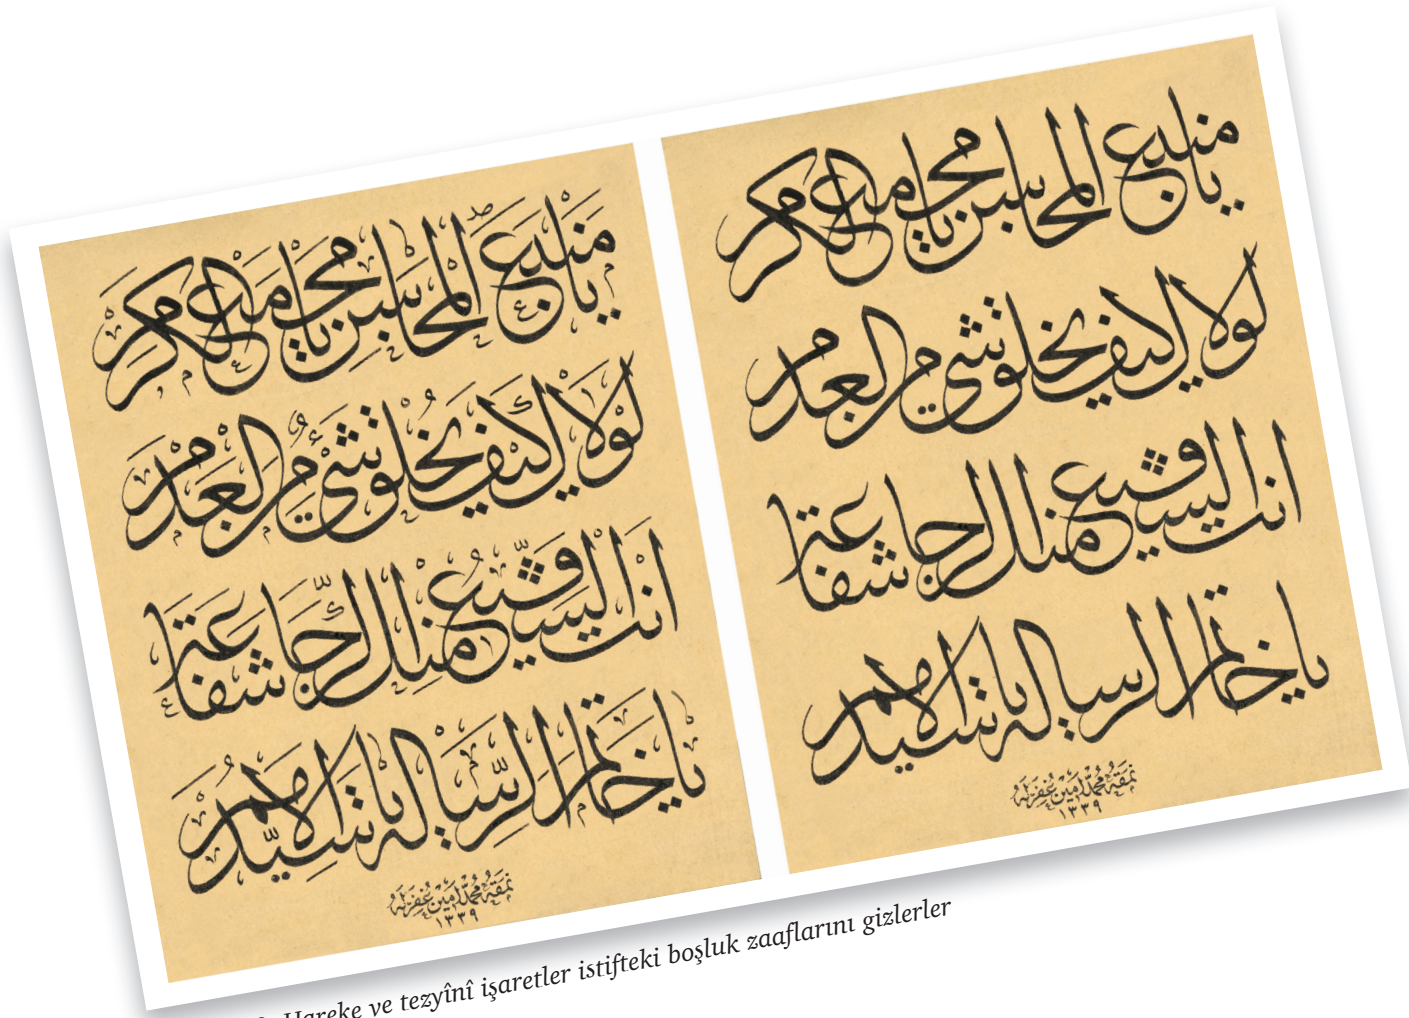 يا منبع المحاسن يا مجمع الكرم
لولاك كيف يخلق شيء من العدم
انت الشفيع الرجا شفاعة
يا خاتم الرسالة يا سيد الامم
نمقه محمد امين غفر له
١٣٣٩
يَا مَنْبَع الْمَحَاسِنِ يَا مَجْمَعَ الْكَرَمِ
لَوْلَاكَ كَيْفَ يُخْلَقُ شَيْءٌ مِنَ الْعَدَمِ
اَنْتَ الشَّفِيعُ الرَّجَا شَفَاعَة
يَا خَاتَمَ الرِّسَالَة يَا سَيِّدَ الْاُمَمِ
نمقه محمد امين غفر له
١٣٣٩
Hareke ve tezyînî işaretler istifteki boşluk zaaflarını gizlerler